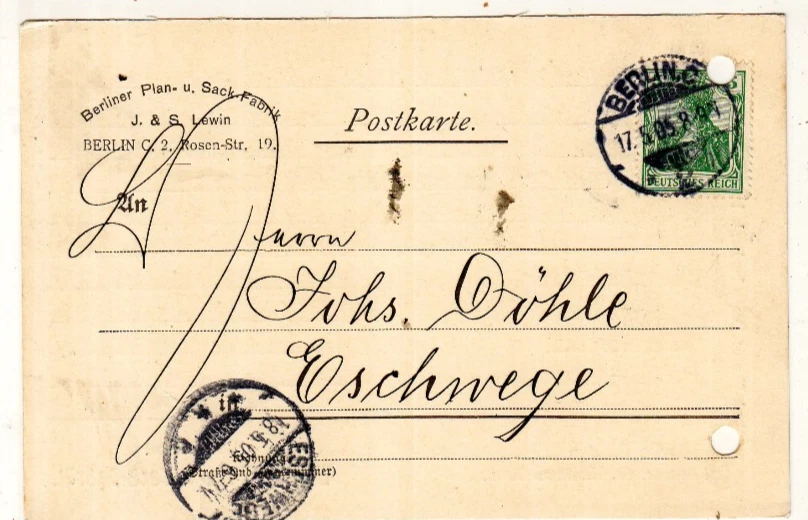 Berliner Plan- u. Sack-Fabrik
J. & S. Lewin
BERLIN C. 2, Rosen-Str. 19.
Postkarte.
BERLIN.C.
17. 5. 05. 8-9
5
DEUTSCHES REICH
An
Herrn
Johs. Döhle
Eschwege
in
18.5.05
ESCHWEGE
Wohnung
(Straße und Hausnummer)